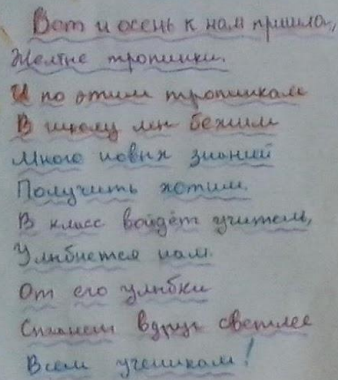 Вот и осень к нам пришла,
Желтые тропинки.
И по этим тропинкам
В школу мы бежим
Много новых знаний
Получить хотим.
В класс войдёт учитель,
Улыбнется нам.
От его улыбки
Станет вдруг светлее
Всем ученикам!